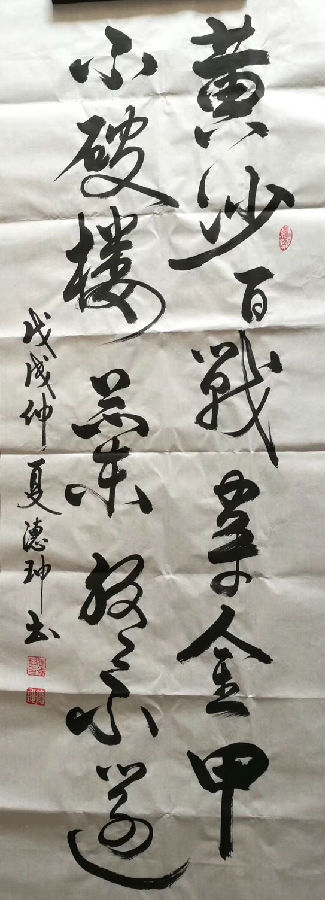 黄沙百戰穿金甲
不破楼蘭终不還
戊戌仲夏德珅书